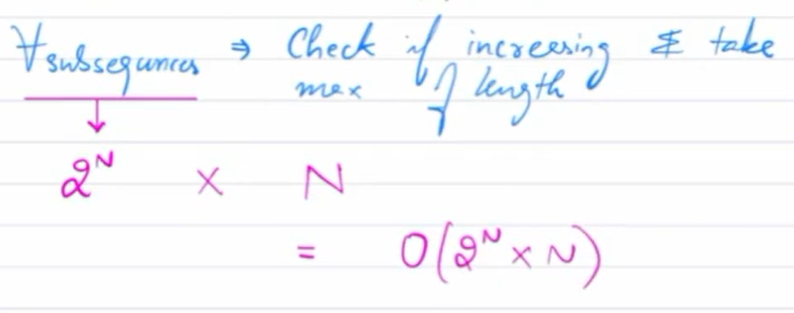 ∀ subsequences ⇒ Check if increasing & take
max of length
↓
2^N × N
= O(2^N × N)